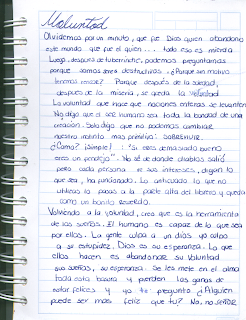 Voluntad
Olvidemos por un minuto, que fue Dios quien abandono
este mundo que fue el quien... todo eso es mierda
Luego, despues de tuberinche, podemos preguntarnos
porque somos seres destructivos. ¿Porque un motivo
tenemos corage? Porque después de la soledad,
despues de la miseria, se queda la voluntad
La voluntad que hace que naciones enteras se levanten
No digo que el ser humano sea toda la bondad de una
creación. Solo digo que no podemos cambiar
nuestro instinto mas primitivo: sobrevivir.
¿Como? ¡Simple! : "Si eres demasiado bueno
eres un pendejo". No sé de donde diablos salió
pero cada persona ve sus intereses, digan lo
que sea, ha funcionado. La anticuado lo que no
utilizas lo pasas a la parte alta del librero y queda
como un bonito recuerdo.
Volviendo a la voluntad, creo que es la herramienta
de los sueños. El humano es capaz de lo que sea
por ellos. La gente culpa a un dios, yo culpo
a su estupidez. Dios es su esperanza. Lo que
ellos hacen es abandonar su voluntad
sus sueños, su esperanza. Se les mete en el alma
toda esta basura y pierden las ganas de
estar felices y yo te pregunto ¿Alguien
puede ser mas feliz que tu? No, no señor.